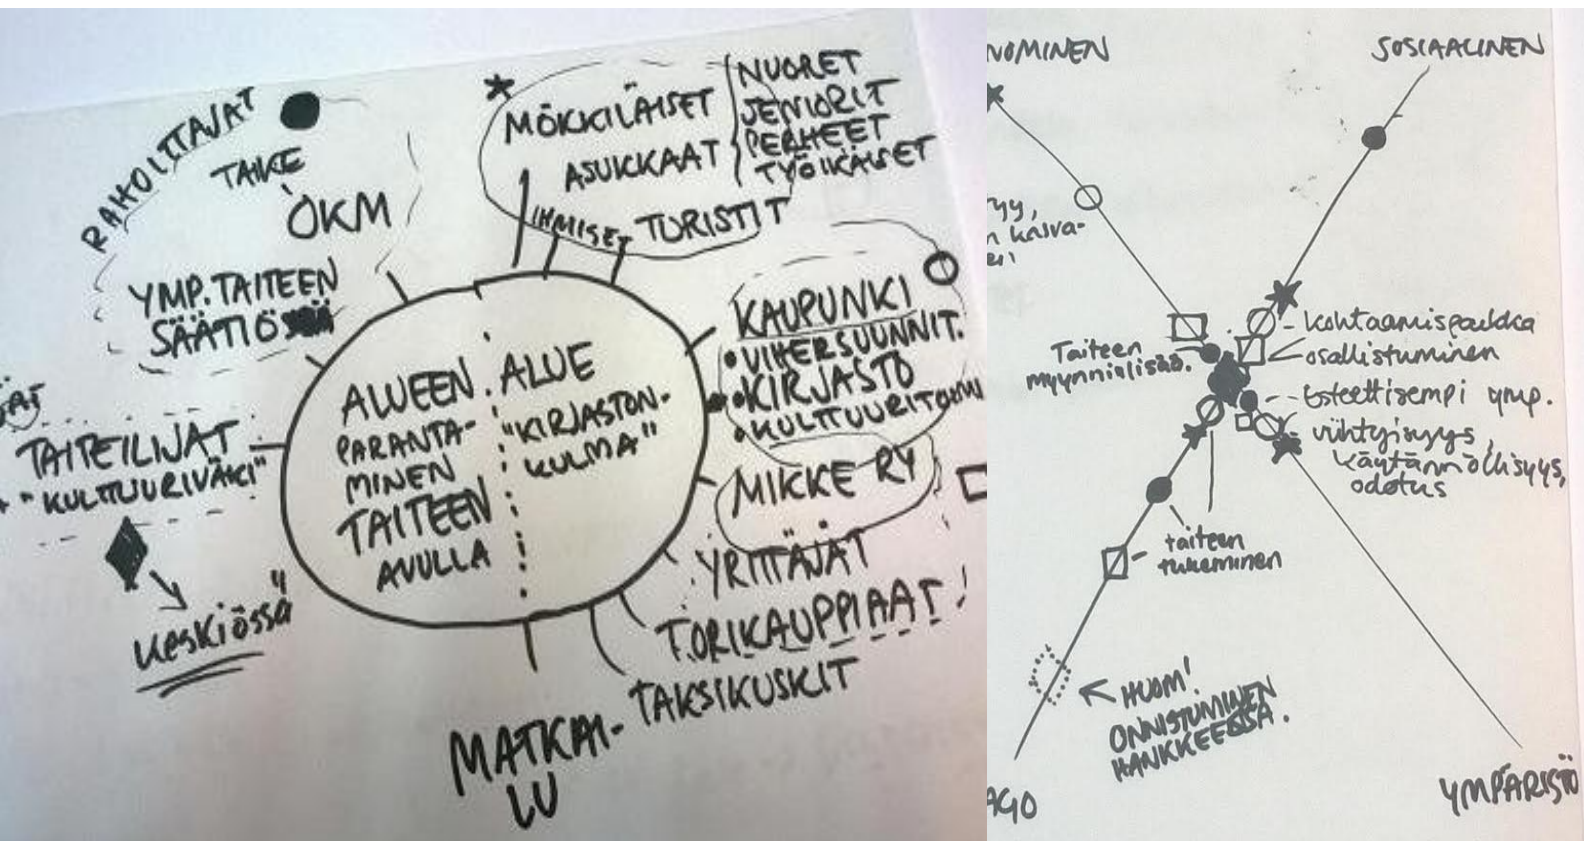 RAHOITTAJAT
TAIKE
ÖKM
YMP. TAITEEN
SÄÄTIÖ
MÖKKILÄISET
ASUKKAAT
NUORET
SENIORIT
PERHEET
TYÖIKÄISET
IHMISET
TURISTIT
KAUPUNKI
• VIHERSUUNNIT.
• KIRJASTO
• KULTTUURITOIMI
MIKKE RY
YRITTÄJÄT
TORIKAUPPIAAT!
TAKSIKUSKIT
MATKAI-
LU
TAITEILIJAT
+ "KULTTUURIVÄKI"
Keskiössä
ALUEEN
PARANTA-
MINEN
TAITEEN
AVULLA
ALUE
"KIRJASTON-
KULMA"
NOMINEN
SOSIAALINEN
Taiteen
myynnialisää.
kohtaamispaikka
osallistuminen
Esteettisempi ymp.
viihtyisyys,
käytännöllisyys,
odotus
taiteen
tukeminen
HUOM!
ONNISTUMINEN
HANKKEESSA.
AGO
YMPÄRISTÖ